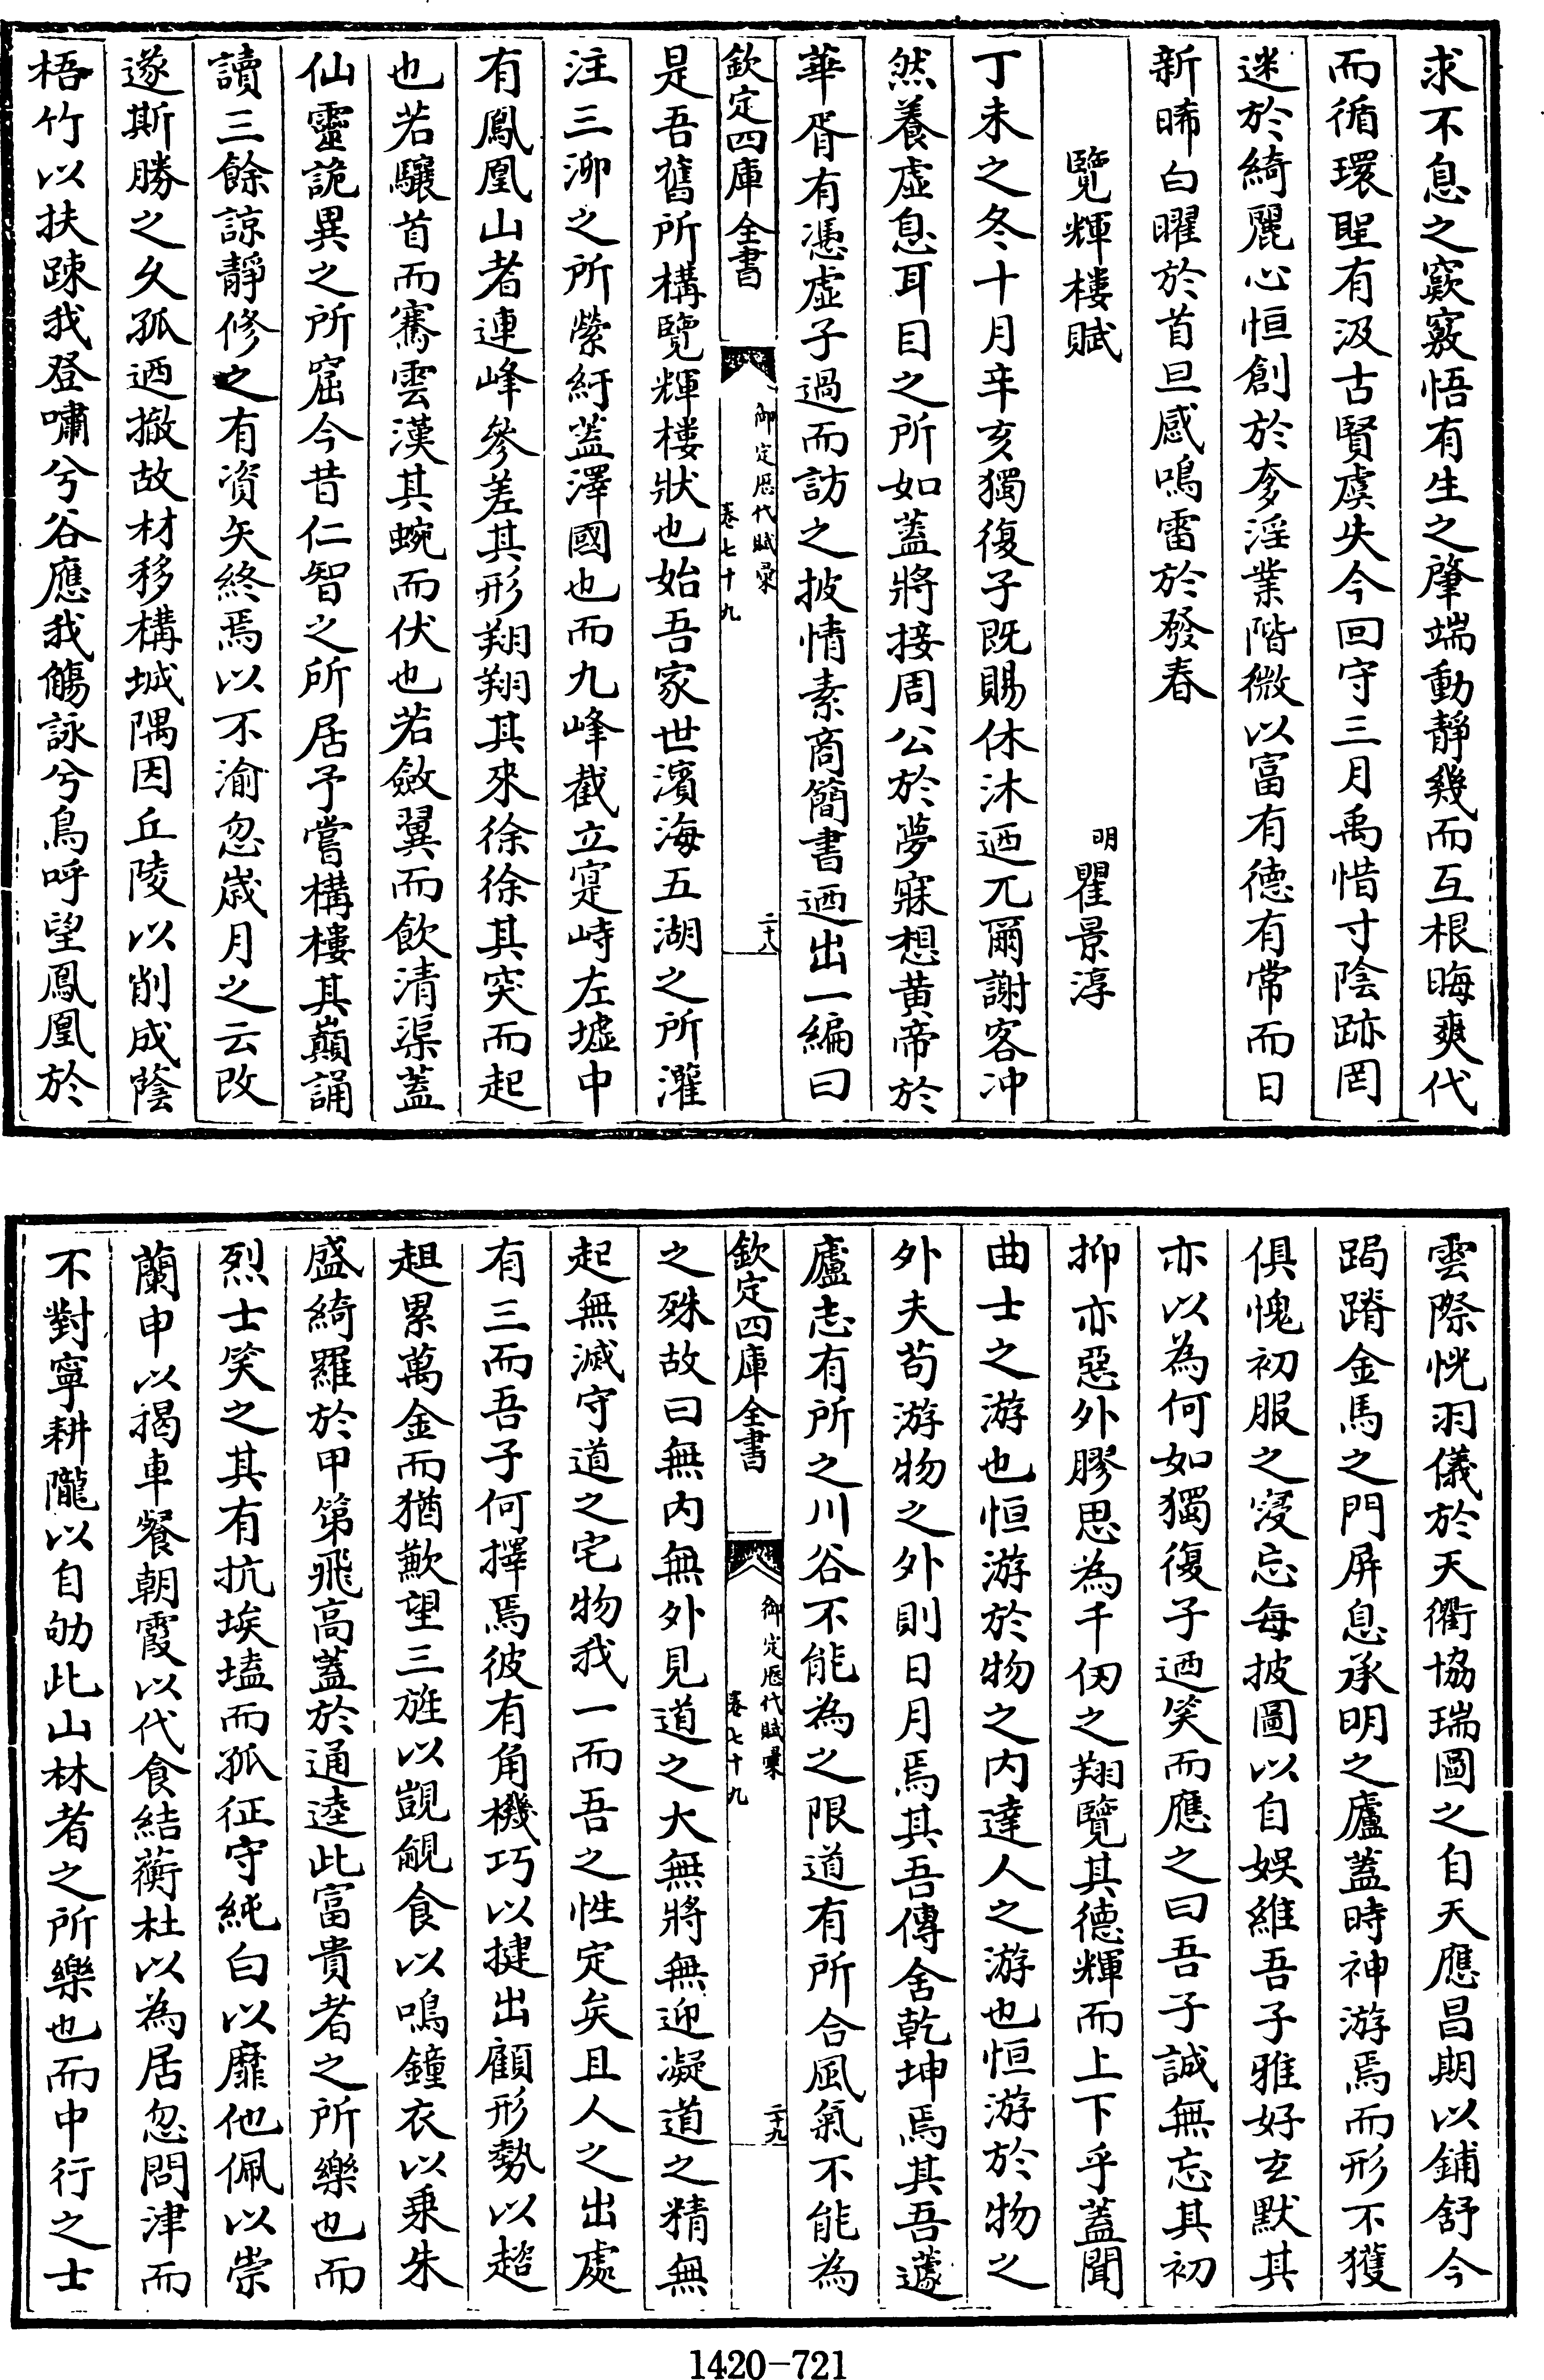 求不息之窾竅悟有生之肇端動靜幾而互根晦爽代
而循環聖有汲古賢虞失今回守三月禹惜寸陰跡罔
迷於綺麗心恒創於奓淫業階微以富有德有常而日
新晞白曜於首旦感鳴雷於發春
覽輝樓賦
明
瞿景淳
丁未之冬十月辛亥獨復子既賜休沐迺兀爾謝客冲
然養虛息耳目之所如蓋將接周公於夢寐想黄帝於
華胥有憑虛子過而訪之披情素商簡書迺出一編曰
欽定四庫全書
御定歴代賦彙
卷七十九
二十八
是吾舊所構覽輝樓狀也始吾家世濱海五湖之所灌
注三泖之所縈紆蓋澤國也而九峰截立寔峙左墟中
有鳳凰山者連峰參差其形翔翔其來徐徐其突而起
也若驤首而騫雲漢其蜿而伏也若斂翼而飲清渠蓋
仙靈詭異之所窟今昔仁智之所居予嘗構樓其巔誦
讀三餘諒靜修之有資矢終焉以不渝忽歲月之云改
遂斯勝之久孤迺撤故材移構城隅因丘陵以削成蔭
梧竹以扶踈我登嘯兮谷應我觴詠兮鳥呼望鳳凰於
雲際恍羽儀於天衢協瑞圖之自天應昌期以鋪舒今
跼蹐金馬之門屏息承明之廬蓋時神游焉而形不獲
俱愧初服之寖忘每披圖以自娛維吾子雅好玄默其
亦以為何如獨復子迺笑而應之曰吾子誠無忘其初
抑亦惡外膠思為千仞之翔覽其德輝而上下乎蓋聞
曲士之游也恒游於物之内達人之游也恒游於物之
外夫苟游物之外則日月焉其吾傳舍乾坤焉其吾蘧
廬志有所之川谷不能為之限道有所合風氣不能為
欽定四庫全書
御定歴代賦彙
卷七十九
二十九
之殊故曰無内無外見道之大無將無迎凝道之精無
起無滅守道之宅物我一而吾之性定矣且人之出處
有三而吾子何擇焉彼有角機巧以揵出顧形勢以趦
趄累萬金而猶歉望三旌以覬覦食以鳴鐘衣以乗朱
盛綺羅於甲第飛高蓋於通逵此富貴者之所樂也而
烈士笑之其有抗埃壒而孤征守純白以靡他佩以崇
蘭申以揭車餐朝霞以代食結蘅杜以為居忽問津而
不對寧耕隴以自劬此山林者之所樂也而中行之士
1420-721